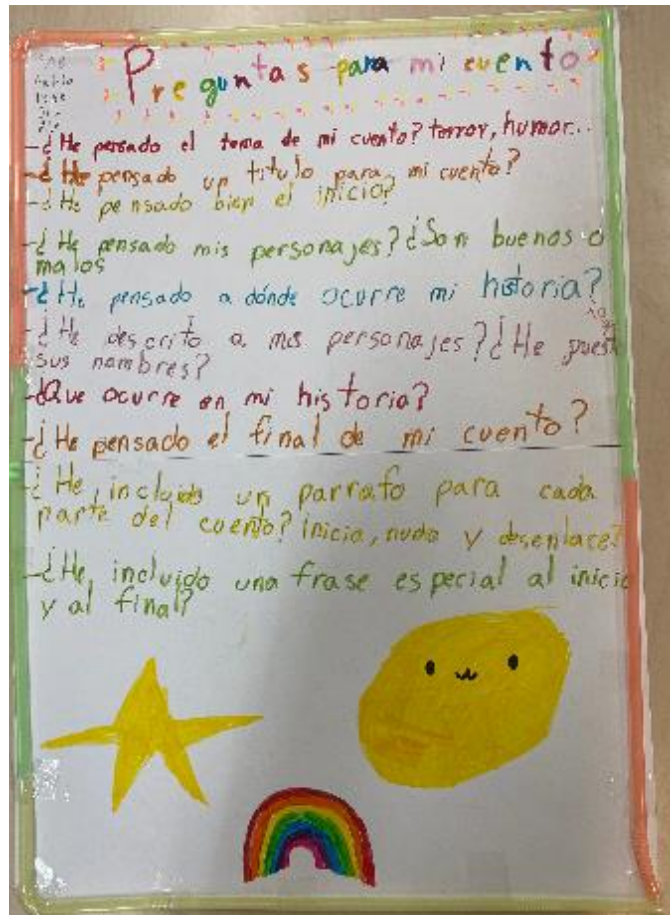 Preguntas para mi cuento
-¿He pensado el tema de mi cuento? terror, humor...
-¿He pensado un titulo para mi cuento?
-¿He pensado bien el inicio?
-¿He pensado mis personajes? ¿Son buenos o
malos
-¿He pensado a dónde ocurre mi historia?
-¿He descrito a mis personajes? ¿He puesto
sus nombres?
-¿Que ocurre en mi historia?
-¿He pensado el final de mi cuento?
-¿He incluido un parrafo para cada
parte del cuento? inicio, nudo y desenlace?
-¿He incluido una frase especial al inicio
y al final?